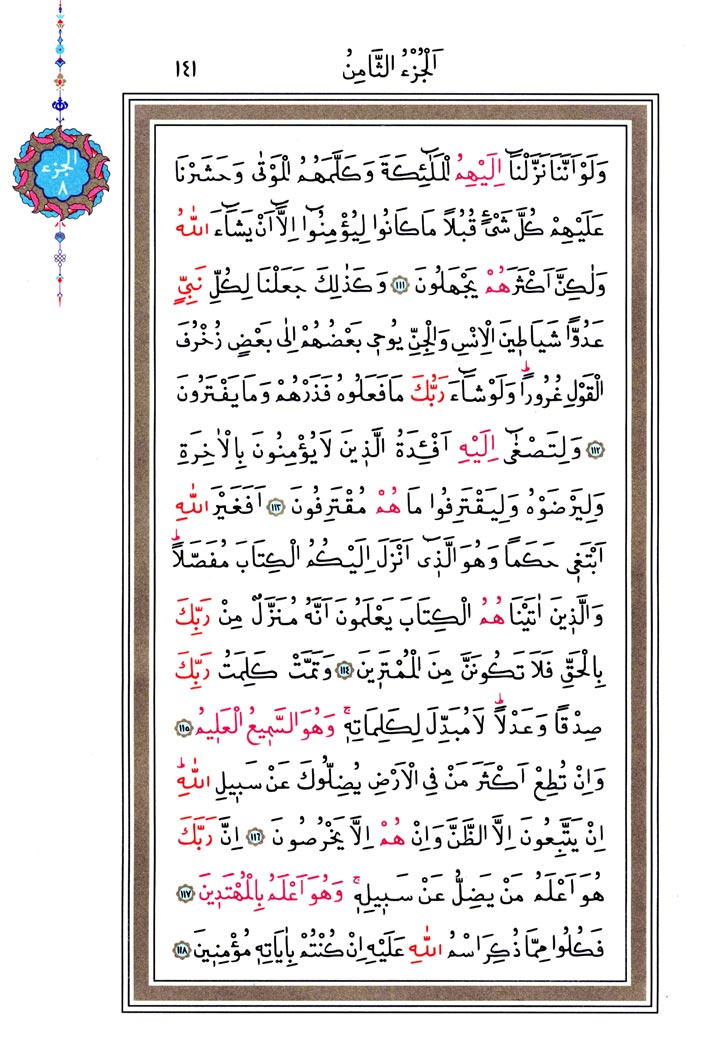 اَلْجُزْءُ الثَّامِنُ ١٤١
الجزء
٨
وَلَوْ اَنَّنَا نَزَّلْنَٓا اِلَيْهِمُ الْمَلٰٓئِكَةَ وَكَلَّمَهُمُ الْمَوْتٰى وَحَشَرْنَا
عَلَيْهِمْ كُلَّ شَيْءٍ قُبُلاً مَا كَانُوا لِيُؤْمِنُٓوا اِلَّٓا اَنْ يَشَٓاءَ اللّٰهُ
وَلٰكِنَّ اَكْثَرَهُمْ يَجْهَلُونَ ﴿١١١﴾ وَكَذٰلِكَ جَعَلْنَا لِكُلِّ نَبِيٍّ
عَدُوًّا شَيَاط۪ينَ الْاِنْسِ وَالْجِنِّ يُوح۪ي بَعْضُهُمْ اِلٰى بَعْضٍ زُخْرُفَ
الْقَوْلِ غُرُورًاۜ وَلَوْ شَٓاءَ رَبُّكَ مَا فَعَلُوهُ فَذَرْهُمْ وَمَا يَفْتَرُونَ
﴿١١٢﴾ وَلِتَصْغٰٓى اِلَيْهِ اَفْـِٔدَةُ الَّذ۪ينَ لَا يُؤْمِنُونَ بِالْاٰخِرَةِ
وَلِيَرْضَوْهُ وَلِيَقْتَرِفُوا مَا هُمْ مُقْتَرِفُونَ ﴿١١٣﴾ اَفَغَيْرَ اللّٰهِ
اَبْتَغ۪ي حَكَمًا وَهُوَ الَّذ۪ٓي اَنْزَلَ اِلَيْكُمُ الْكِتَابَ مُفَصَّلاًۜ
وَالَّذ۪ينَ اٰتَيْنَاهُمُ الْكِتَابَ يَعْلَمُونَ اَنَّهُ مُنَزَّلٌ مِنْ رَبِّكَ
بِالْحَقِّ فَلَا تَكُونَنَّ مِنَ الْمُمْتَر۪ينَ ﴿١١٤﴾ وَتَمَّتْ كَلِمَتُ رَبِّكَ
صِدْقًا وَعَدْلاًۜ لَا مُبَدِّلَ لِكَلِمَاتِه۪ۚ وَهُوَ السَّم۪يعُ الْعَل۪يمُ ﴿١١٥﴾
وَاِنْ تُطِعْ اَكْثَرَ مَنْ فِي الْاَرْضِ يُضِلُّوكَ عَنْ سَب۪يلِ اللّٰهِۜ
اِنْ يَتَّبِعُونَ اِلَّا الظَّنَّ وَاِنْ هُمْ اِلَّا يَخْرُصُونَ ﴿١١٦﴾ اِنَّ رَبَّكَ
هُوَ اَعْلَمُ مَنْ يَضِلُّ عَنْ سَب۪يلِه۪ۚ وَهُوَ اَعْلَمُ بِالْمُهْتَد۪ينَ ﴿١١٧﴾
فَكُلُوا مِمَّا ذُكِرَ اسْمُ اللّٰهِ عَلَيْهِ اِنْ كُنْتُمْ بِاٰيَاتِه۪ مُؤْمِن۪ينَ ﴿١١٨﴾